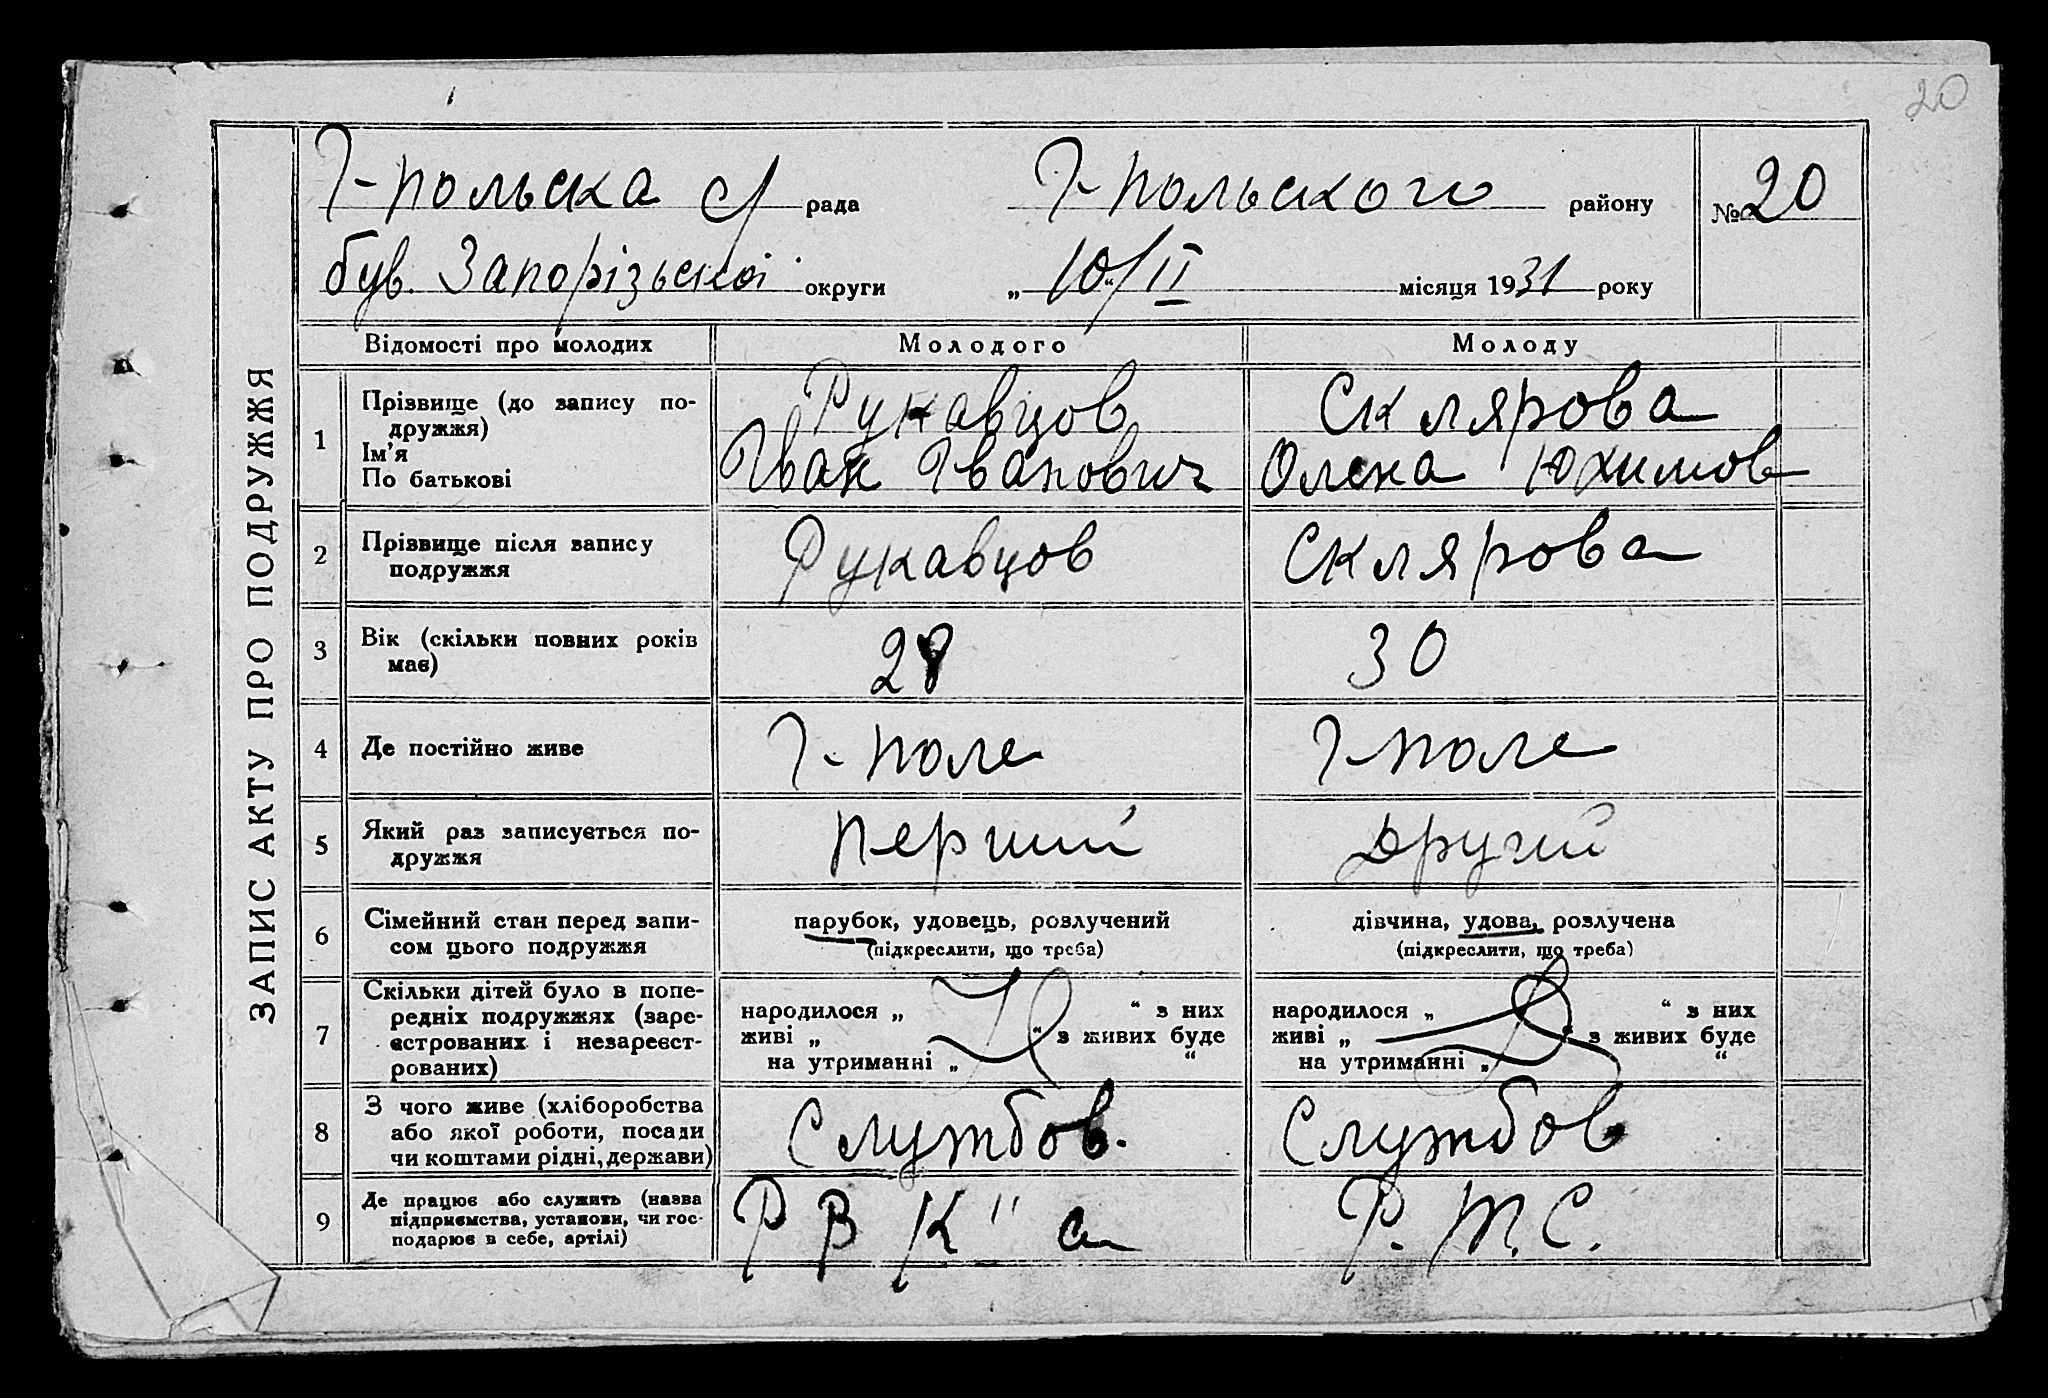 20
Г-польска с/ рада Г-польского району № 20
був. Запорізької округи „ 10/II “ місяця 1931 року
ЗАПИС АКТУ ПРО ПОДРУЖЖЯ
Відомості про молодих Молодого Молоду
1 Прізвище (до запису по-
дружжя)
Ім'я
По батькові
Рукавцов
Іван Іванович
Склярова
Олена Юхимов
2 Прізвище після запису
подружжя
Рукавцов
Склярова
3 Вік (скільки повних років
має)
28
30
4 Де постійно живе
Г-поле
Г-поле
5 Який раз записується по-
дружжя
перший
другий
6 Сімейний стан перед запи-
сом цього подружжя
парубок, удовець, розлучений
(підкреслити, що треба)
дівчина, удова, розлучена
(підкреслити, що треба)
7 Скільки дітей було в попе-
редніх подружжях (заре-
єстрованих і незареєст-
рованих)
народилося „ “ з них
живі „ “ з живих буде
на утриманні „ “
народилося „ “ з них
живі „ “ з живих буде
на утриманні „ “
8 З чого живе (хліборобства
або якої роботи, посади
чи коштами рідні, держави)
Службов.
Службов
9 Де працює або служить (назва
підприємства, установи, чи гос-
подарює в себе, артілі)
РВК"а
Р.Т.С.